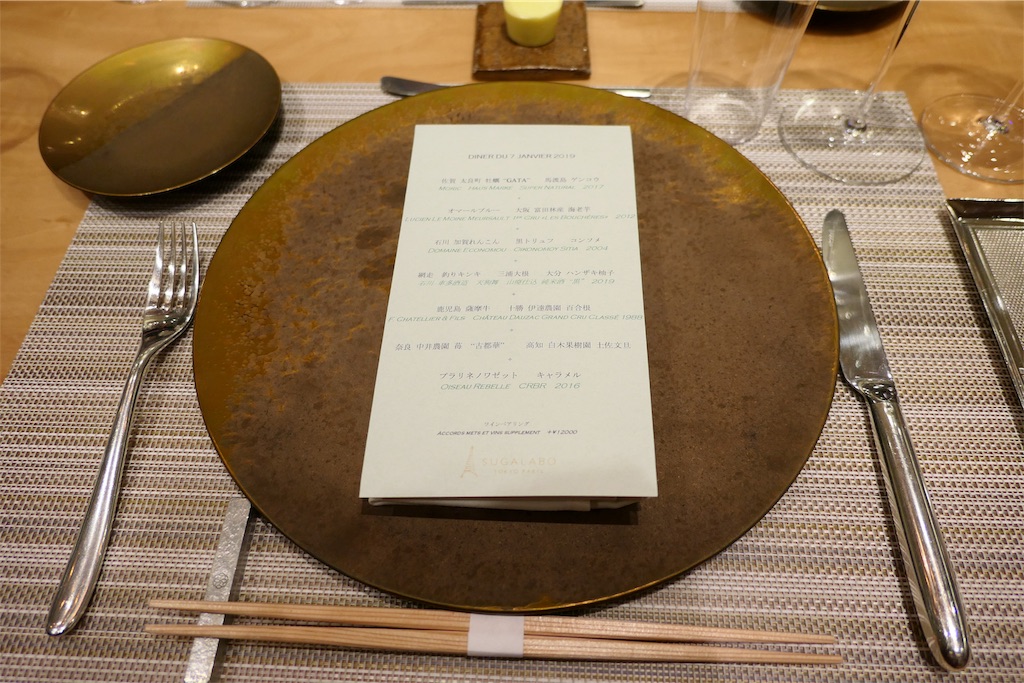 DINER DU 7 JANVIER 2019
佐賀 太良町 牡蠣 “GATA” 鳥護島 アンコウ
2017
オマールブルー 大阪 富田林産 海老芋
LUCIEN LE MOINE MEURSAULT 1er CRU «LES BOUCHÈRES» 2012
石川 加賀れんこん 黒トリュフ コンソメ
DOMAINE ECONOMOU OIKONOMOY SITIA 2004
網走 釣りキンキ 三浦大根 大分 ハンザキ柚子
石川 山廃仕込 純米酒 2019
鹿児島 薩摩牛 十勝 伊達農園 百合根
F. CHATELLIER & FILS CHÂTEAU DAUZAC GRAND CRU CLASSÉ 1988
奈良 中井農園 苺 “古都華” 高知 白木果樹園 土佐文旦
プラリネノワゼット キャラメル
OISEAU REBELLE CRBR 2016
ワインペアリング
ACCORDS METS ET VINS SUPPLEMENT +¥12000
SUGALABO